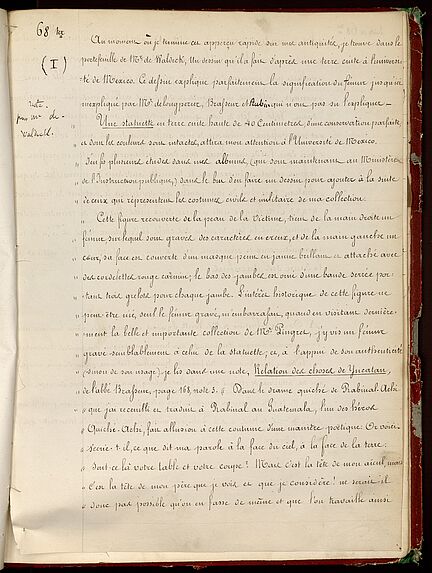 68 bis
(I)
Note
pour mr de
Waldeck.
Au moment où je termine cet apperçu rapide sur mes antiquités, je trouve dans le
portefeuille de Mr de Waldeck, un dessin qu'il a fait d'après une terre cuite à l'universi-
té de Mexico. Ce dessin explique parfaitement la signification du fémur jusqu'ici
inexpliqué par Mrs delongperier, Brasseur et qui n'on pas su l'expliquer.
" Une statuette en terre cuite haute de 40 Centimetres d'une conservation parfaite
" et dont les couleurs sont intactes attira mon attention à l'Université de Mexico.
" J'en fis plusieurs études dans mes albums, (qui sont maintenant au Ministère
" de l'Instruction publique,) dans le but d'en faire un dessin pour ajouter à la suite
" de ceux qui représentent les costumes civils et militaire de ma collection.
" Cette figure recouverte de la peau de la Victime, tient de la main droite un
" fémur sur lequel sont gravés des caractères en creux, et de la main gauche un
" cœur, sa face est couverte d'un masque peint en jaune brillant et attaché avec
" des cordelettes rouge carmin; le bas des jambes est orné d'une bande serrée por-
" tant trois grelots pour chaque jambe. L'intérêt historique de cette figure ne
" peut être nié, seul le fémur gravé, m'embarrassait, quand en visitant dernière-
" ment la belle et importante collection de Mr Pingret, j'y vis un fémur
" gravé semblablement à celui de la statuette, et, à l'appui de son authenticité
" (sinon de son usage), je lis dans une note, Relation des choses de Yucatan,
" de l'abbé Brasseur, page 168, note 3. " Dans le drame quiché de Rabinal-Achi
" que j'ai recueilli et traduit à Rabinal au Guatemala, l'un des héros
" Quiché-Achi, fait allusion à cette coutume d'une manière poétique: On voit,
" s'écrie-t-il, ce que dit ma parole à la face du ciel, à la face de la terre:
" Sont-ce là votre table et votre coupe! Mais c'est la tête de mon aïeul, mais
" c'est la tête de mon père que je vois et que je considère! ne serait il
" donc pas possible qu'on en fasse de même et que l'on travaille ainsi